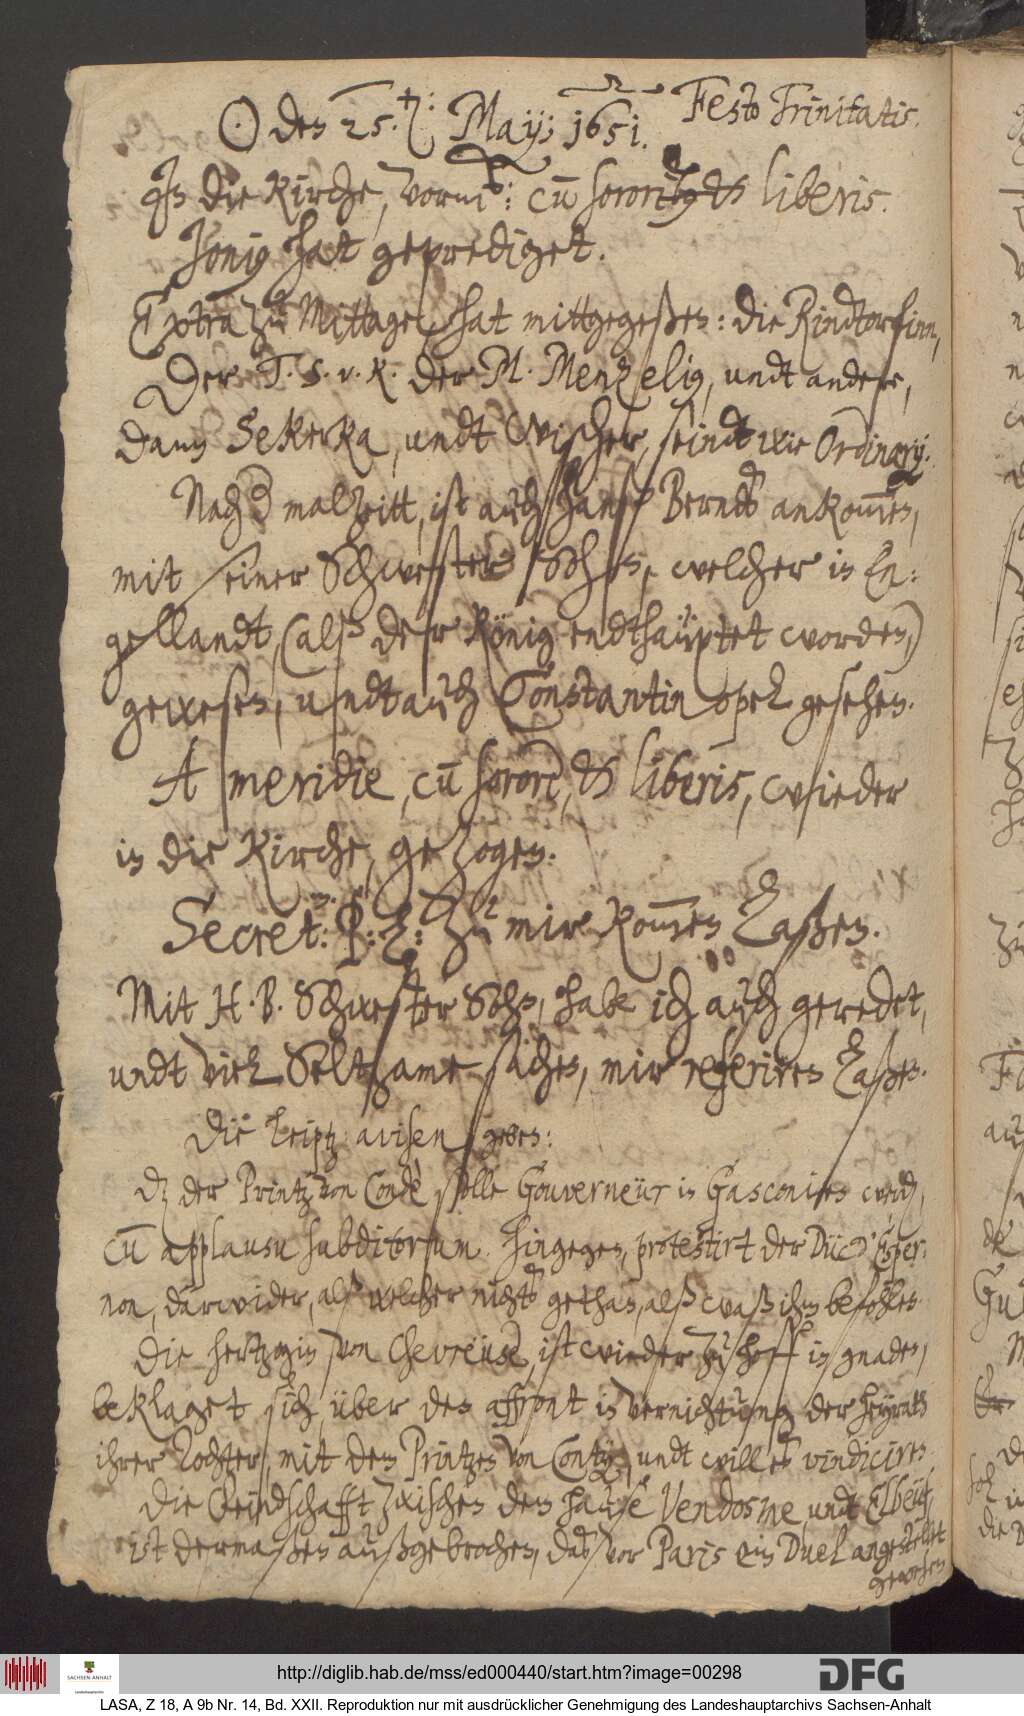 ☉ den 25.: May; 1651. Festo Trinitatis.
In die Kirche, vormitt: cu͞ sororib; & liberis.
Jonius hat geprediget.
Extra zu Mittage, hat mittgegeßen: die Rindtorfinn,
Der T. S. v. K. der M. Menzelius, undt andere,
dann Sekerka, undt Wischer, seindt wie Ordinarij.
Nach der malzeitt, ist auch Hanß Berndt ankom̅en,
mit seiner Schwester Sohn, welcher in En¬
gellandt, (alß der König endthäuptet worden,)
gewesen, undt auch Constantinopel gesehen.
A meridie, cu͞ sorori; & liberis, wieder
in die Kirche, gezogen.
Secret: P: L: zu mir kom̅en laßen.
Mit H. B. Schwester Sohn, habe ich auch geredet,
undt viel Seltzame sachen, mir referiren laßen.
Die Leiptz: avisen geben:
Dz der Printz von Condè solle Gouverneur in Gasconien werd,
cu͞ applausu subditorum. Hingegen, protestirt der Duc d'Esper:
non, darwider, alß welcher nichts gethan, alß waß ihm befohlen.
Die Hertzogin von Chevreuse, ist wieder zu hoff in gnaden,
beklaget sich über den affront in vernichtung der heyrath
ihrer Tochter, mit dem Printzen von Conty, undt will es vindiciren.
Die Feindschafft zwischen dem Hause Vendosme, undt Elbeuf,
ist dermaßen außgebrochen, daß vor Paris ein Duel angestellet
geworden
http://diglib.hab.de/mss/ed000440/start.htm?image=00298
SACHSEN-ANHALT
Landeshauptarchiv
DFG
LASA, Z 18, A 9b Nr. 14, Bd. XXII. Reproduktion nur mit ausdrücklicher Genehmigung des Landeshauptarchivs Sachsen-Anhalt